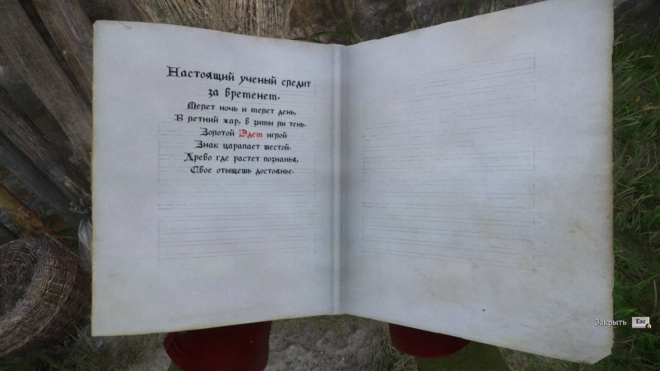 Настоящий ученый следит
за временем.
Мерет ночь и мерет день,
В летний жар, в зимы ли тень.
Золотой Эдем иглой
Знак царапает шестой.
Древо где растет познанья,
Свое отыщешь достоянье.
Закрыть Esc